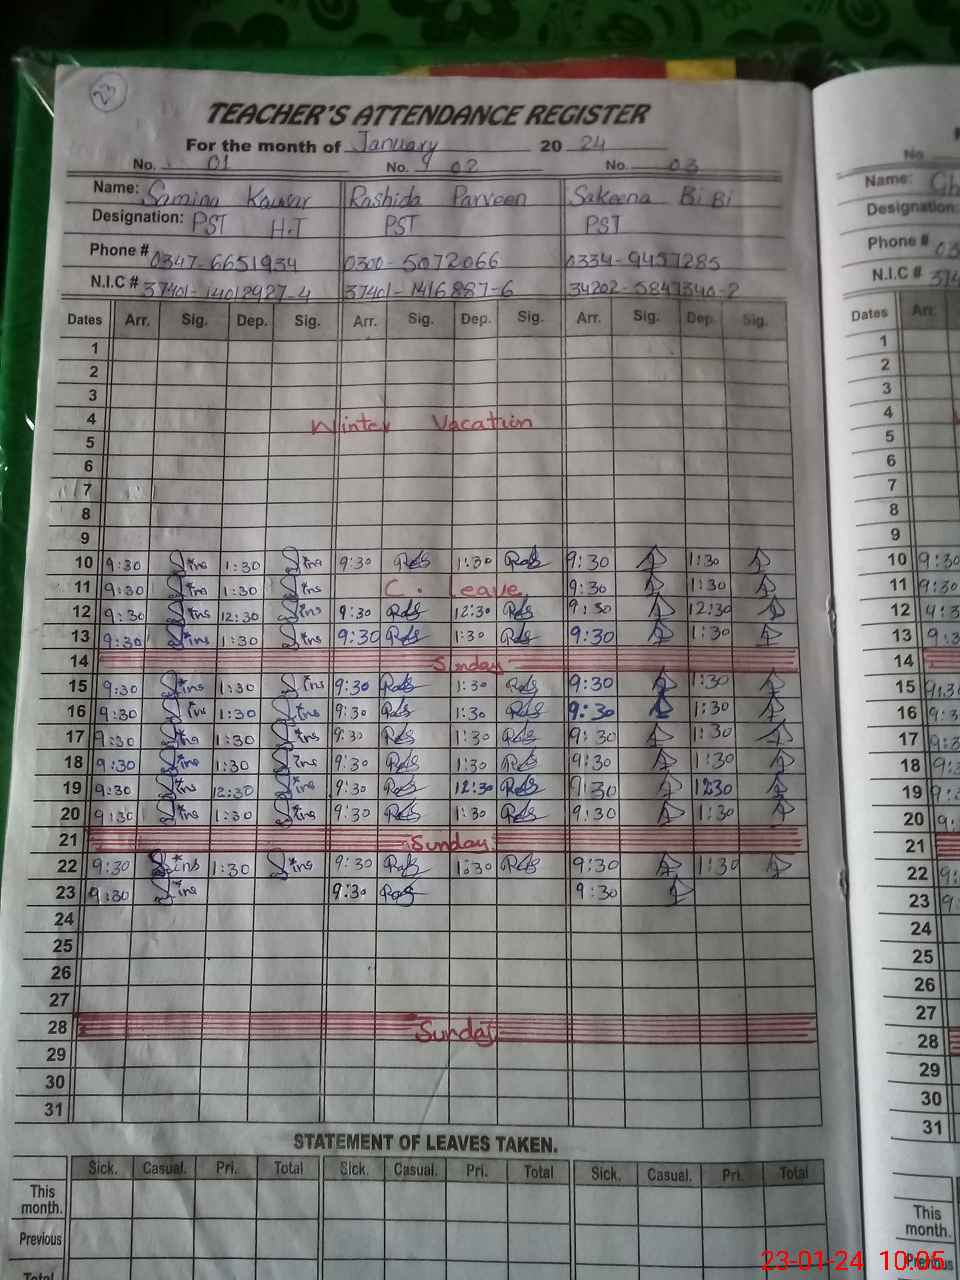 23
TEACHER'S ATTENDANCE REGISTER
For the month of January 2024
No. 01 No. 02 No. 03
Name: Samina Kausar Rashida Parveen Sakeena Bi Bi
Designation: PST H.T PST PST
Phone # 0347-6651934 0300-5072066 0334-9457285
N.I.C # 37401-14012927-4 37401-1416887-6 34202-5847340-2
Dates Arr. Sig. Dep. Sig. Arr. Sig. Dep. Sig. Arr. Sig. Dep. Sig.
1
2
3
4 Winter Vacation
5
6
7
8
9
10 9:30 1:30 9:30 1:30 9:30 1:30
11 9:30 1:30 C. Leave 9:30 1:30
12 9:30 12:30 9:30 12:30 9:30 12:30
13 9:30 1:30 9:30 1:30 9:30 1:30
14 Sunday
15 9:30 1:30 9:30 1:30 9:30 1:30
16 9:30 1:30 9:30 1:30 9:30 1:30
17 9:30 1:30 9:30 1:30 9:30 1:30
18 9:30 1:30 9:30 1:30 9:30 1:30
19 9:30 12:30 9:30 12:30 9:30 12:30
20 9:30 1:30 9:30 1:30 9:30 1:30
21 Sunday
22 9:30 1:30 9:30 1:30 9:30 1:30
23 9:30 9:30 9:30
24
25
26
27
28 Sunday
29
30
31
STATEMENT OF LEAVES TAKEN.
Sick. Casual. Pri. Total Sick. Casual. Pri. Total Sick. Casual. Pri. Total
This month.
Previous
Total
No
Name:
Designation:
Phone # 03
N.I.C # 374
Dates Arr.
1
2
3
4
5
6
7
8
9
10 9:30
11 9:30
12 9:3
13 9:3
14
15 9:3
16 9:3
17 9:3
18 9:3
19 9:
20 9:
21
22 9:
23 9
24
25
26
27
28
29
30
31
This month.
Previous
23-01-24 10:05